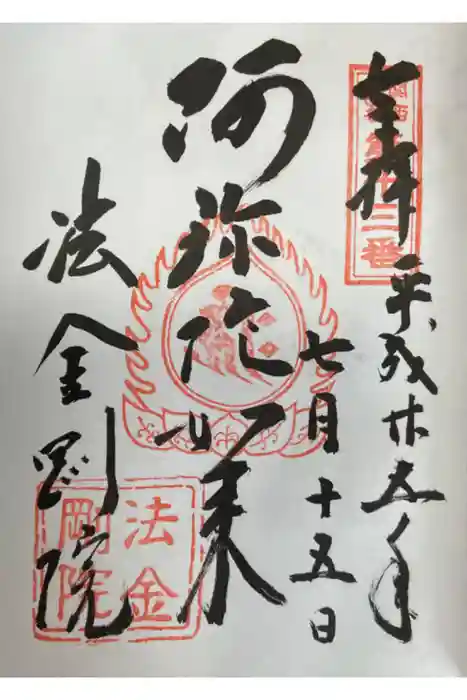 奉拝
関西 第十三番
平成廿五年
七月十五日
阿弥陀如来
法金剛院
法金
剛院